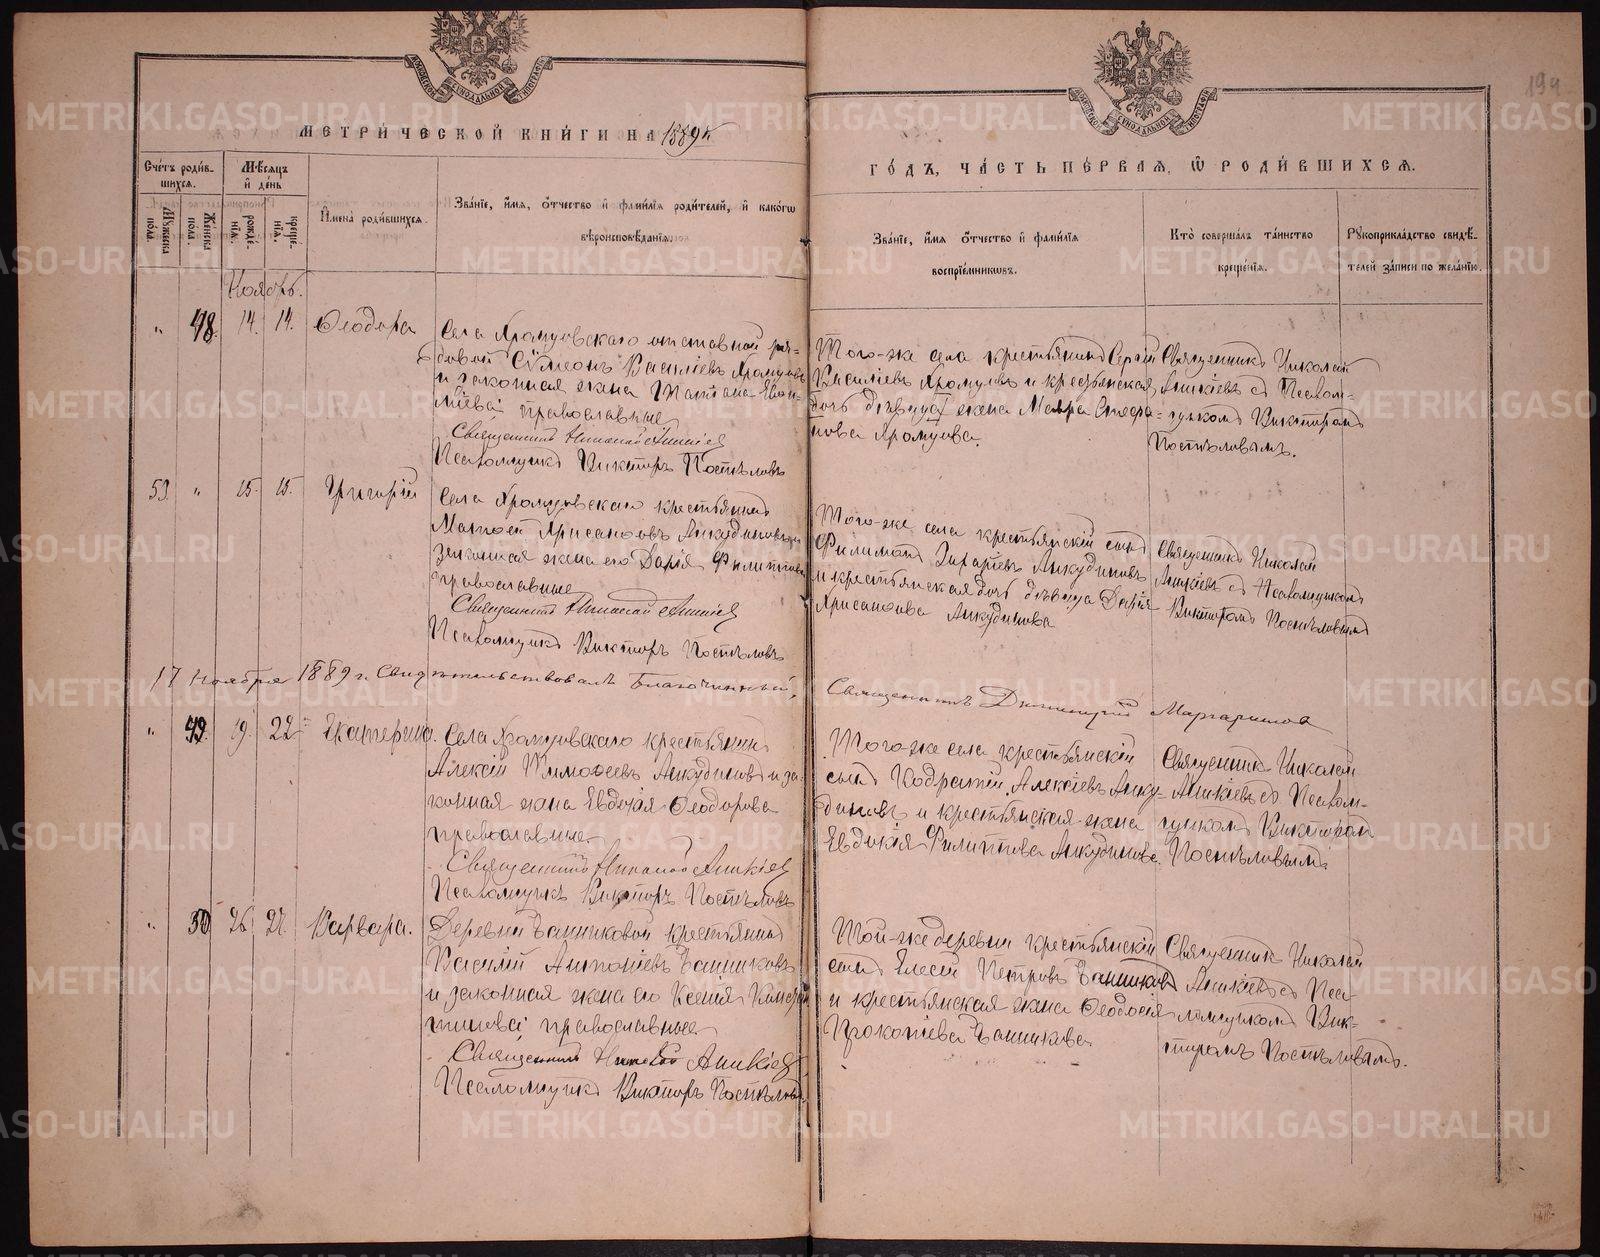 МЕТРИ́ЧЕСКОЙ КНИ́ГИ НА 1889й
ГО́ДЪ, ЧА́СТЬ ПЕ́РВАЯ, Ѿ РОДИ́ВШИХСЯ.
194
Сче́тъ роди́в-
шихся.
Мѣ́сяцъ
и́ де́нь
Мꙋ́жеска по́ла.
Же́нска по́ла.
рожде́-
нїя.
креще́-
нїя.
И҆мена̀ роди́вшихся.
Зва́нїе, и҆́мя, ѻ҆́тчество и҆ фами́лїя роди́телей, и҆ како́гѡ
вѣроисповѣ́данїя.
Зва́нїе, и҆́мя ѻ҆́тчество и҆ фами́лїя
воспрїе́мникѡвъ.
Кто̀ соверша́лъ та́инство
креще́нїя.
Рꙋкоприкла́дство свидѣ́-
телей за́писи по жела́нїю.
Ноябрь.
" 48. 14. 14. Ѳеодора
Села Храмцовскаго отставной ря-
довой Сѵмеонъ Василіевъ Храмцовъ
и законная жена Татіана
православные
Священникъ Николай Аникіев
Псаломщикъ Викторъ Поспѣловъ
Того-же села крестьянинъ Сергій
Василіевъ Храмцовъ и крестьянская
дочь дѣвица жена Мавра Стефа-
нова Храмцова.
Священникъ Николай
Аникіевъ съ Псалом-
щикомъ Викторомъ
Поспѣловымъ.
53 " 15. 15. Григорій
Села Храмцовскаго крестьянинъ
Матѳей Хрисанѳовъ Анкудиновъ и
законная жена его Дарія Филиппова
православные
Священникъ Николай Аникіев
Псаломщикъ Викторъ Поспѣловъ
Того-же села крестьянскій сынъ
Филимонъ Захаріевъ Анкудиновъ
и крестьянская дочь дѣвица Дарія
Хрисанѳова Анкудинова
Священникъ Николай
Аникіевъ съ Псаломщикомъ
Викторомъ Поспѣловымъ
17 Ноября 1889 г. Свидѣтельствовалъ Благочинный,
Священникъ Димитрій Маргаритов
" 49. 19. 22. Екатерина.
Села Храмцовскаго крестьянинъ
Алексій Тимоѳеевъ Анкудиновъ и за-
конная жена Евдокія Ѳеодорова
православные.
Священникъ Николай Аникіев
Псаломщикъ Викторъ Поспѣловъ
Того-же села крестьянскій
сынъ Кодратій Алексіевъ Анку-
диновъ и крестьянская жена
Евдокія Филиппова Анкудинова.
Священникъ Николай
Аникіевъ съ Псалом-
щикомъ Викторомъ
Поспѣловымъ.
" 50 26. 27. Варвара.
Деревни Банниковой крестьянинъ
Василій Антоніевъ Банниковъ
и законная жена его Ксенія
православные
Священникъ Николай Аникіев
Псаломщикъ Викторъ Поспѣловъ.
Той-же деревни крестьянскій
сынъ Елесей Петровъ Банниковъ
и крестьянская жена Ѳеодосія
Прокопіева Банникова.
Священникъ Николай
Аникіевъ съ Пса-
ломщикомъ Вик-
торомъ Поспѣловымъ.
METRIKI.GASO-URAL.RU